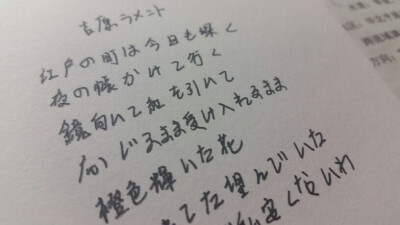 吉原ラメント
江戸の町は今日も深く
夜の帳かけて行く
鏡向いて紅を引いて
じるまま受け入れるまま
橙色輝いた花
んでいた
安くないわ